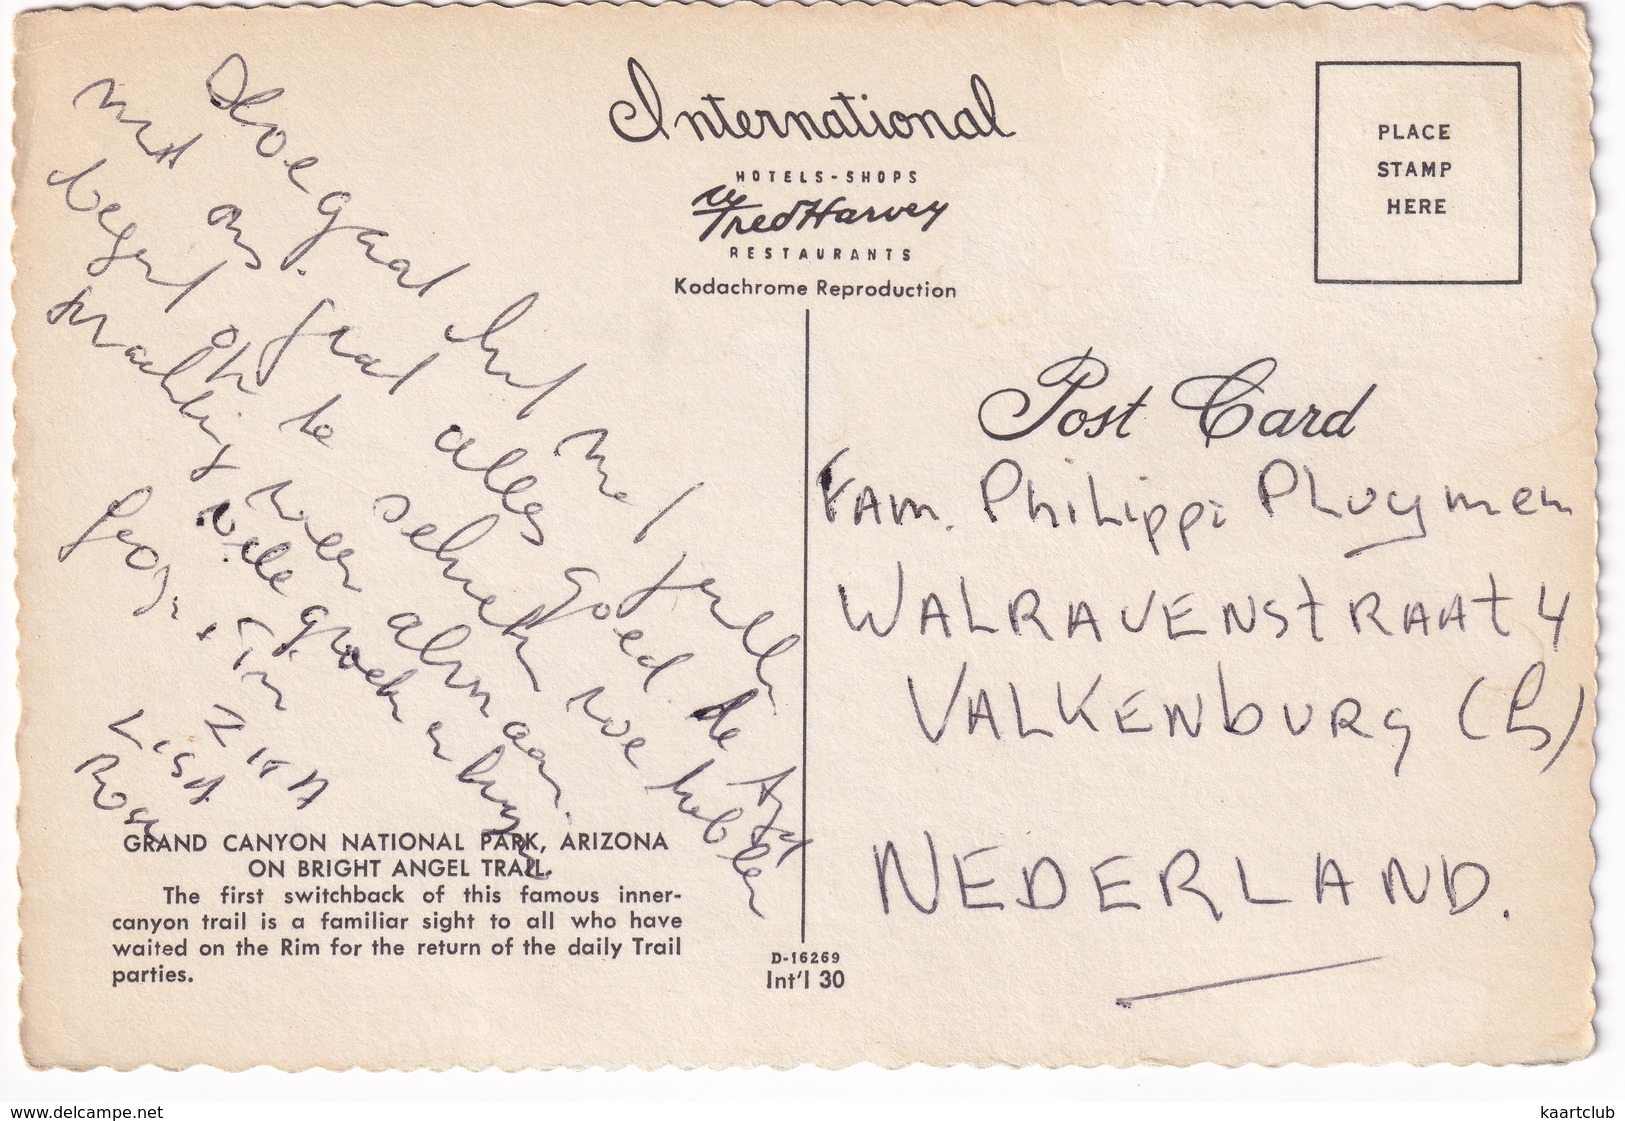 Hoe gaat het met jullie
met ons gaat alles goed de
begint ook te schrijven we hebben
prachtig weer allemaal.
vele groeten en
in
LISA
International
HOTELS-SHOPS
Fred Harvey
RESTAURANTS
Kodachrome Reproduction
PLACE
STAMP
HERE
Post Card
FAM. PHILIPPI PLUYMEN
WALRAVENSTRAAT 4
VALKENBURG (L)
NEDERLAND.
GRAND CANYON NATIONAL PARK, ARIZONA
ON BRIGHT ANGEL TRAIL.
The first switchback of this famous inner-
canyon trail is a familiar sight to all who have
waited on the Rim for the return of the daily Trail
parties.
D-16269
Int'l 30
www.delcampe.net
kaartclub